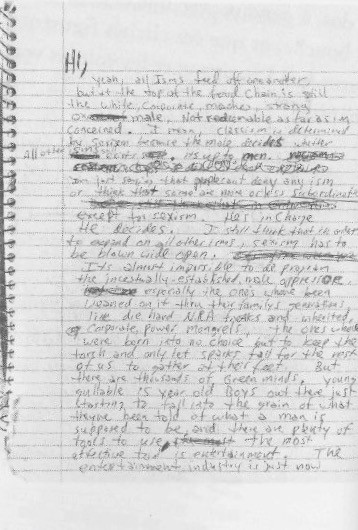 Hi,
Yeah, all Isms feed off one another,
but at the top of the food Chain is still
the white, Corporate, macho, strong
ox male, Not redeemable as far as im
Concerned. I mean, classism is determined
by Sexism because the male decides whether
All other isms exist its up men.
Im just saying that people cant deny any ism
or think that some are more or less Subordinate
except for sexism. Hes in Charge
He decides. I still think that in order
to expand on all other isms, sexism has to
be blown wide open.
Its almost impossible to de program
the incestually-established, male oppressor.
especially the ones whove been
weaned on it thru their familys generations,
like die hard NRA freaks and inherited,
Corporate, power mongrels, the ones whove
were born into no choice but to keep the
torch and only let sparks fall for the rest
of us to gather at their feet. But
there are thousands of Green minds, young
gullable 15 year old Boys out there just
starting to fall into the grain of what
theyve been told of what a man is
supposed to be, and there are plenty of
tools to use. the most
effective tool is entertainment. The
entertainment industry is just now